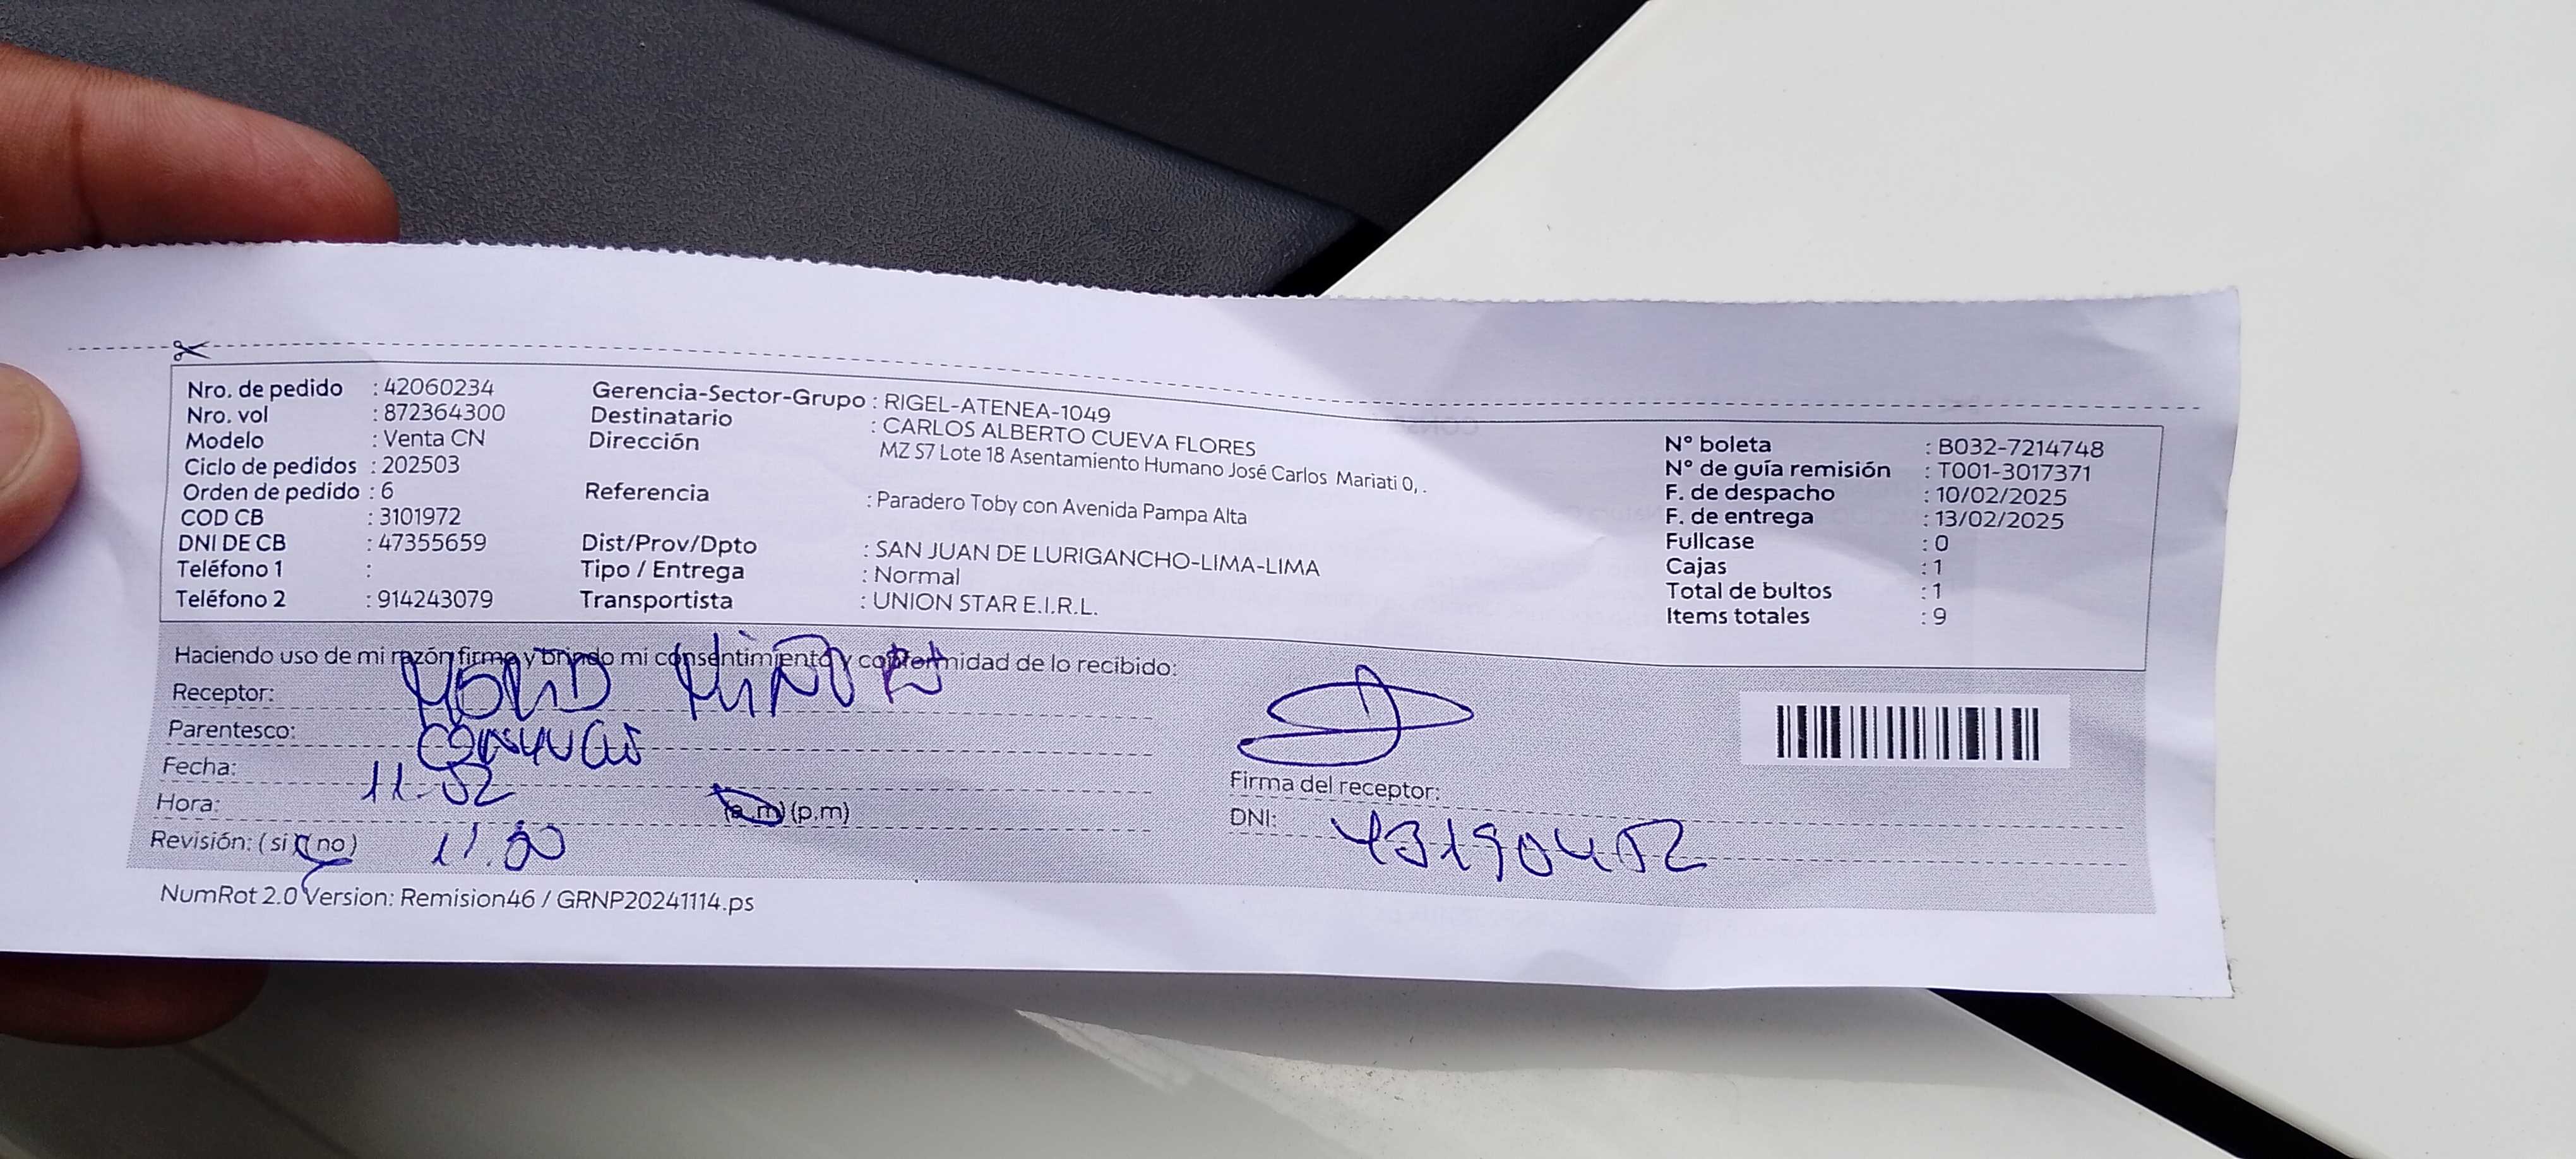 Nro. de pedido : 42060234
Nro. vol : 872364300
Modelo : Venta CN
Ciclo de pedidos : 202503
Orden de pedido : 6
COD CB : 3101972
DNI DE CB : 47355659
Teléfono 1 :
Teléfono 2 : 914243079
Gerencia-Sector-Grupo : RIGEL-ATENEA-1049
Destinatario : CARLOS ALBERTO CUEVA FLORES
Dirección MZ S7 Lote 18 Asentamiento Humano José Carlos Mariati 0, .
Referencia : Paradero Toby con Avenida Pampa Alta
Dist/Prov/Dpto : SAN JUAN DE LURIGANCHO-LIMA-LIMA
Tipo / Entrega : Normal
Transportista : UNION STAR E.I.R.L.
N° boleta : B032-7214748
N° de guía remisión : T001-3017371
F. de despacho : 10/02/2025
F. de entrega : 13/02/2025
Fullcase : 0
Cajas : 1
Total de bultos : 1
Items totales : 9
Haciendo uso de mi razón firmo y brindo mi consentimiento y conformidad de lo recibido:
Receptor:
Parentesco:
Fecha: 11-02
Hora: (a.m) (p.m)
Revisión: ( si ) ( no ) 11.00
Firma del receptor:
DNI: 43190452
NumRot 2.0 Version: Remision46 / GRNP20241114.ps